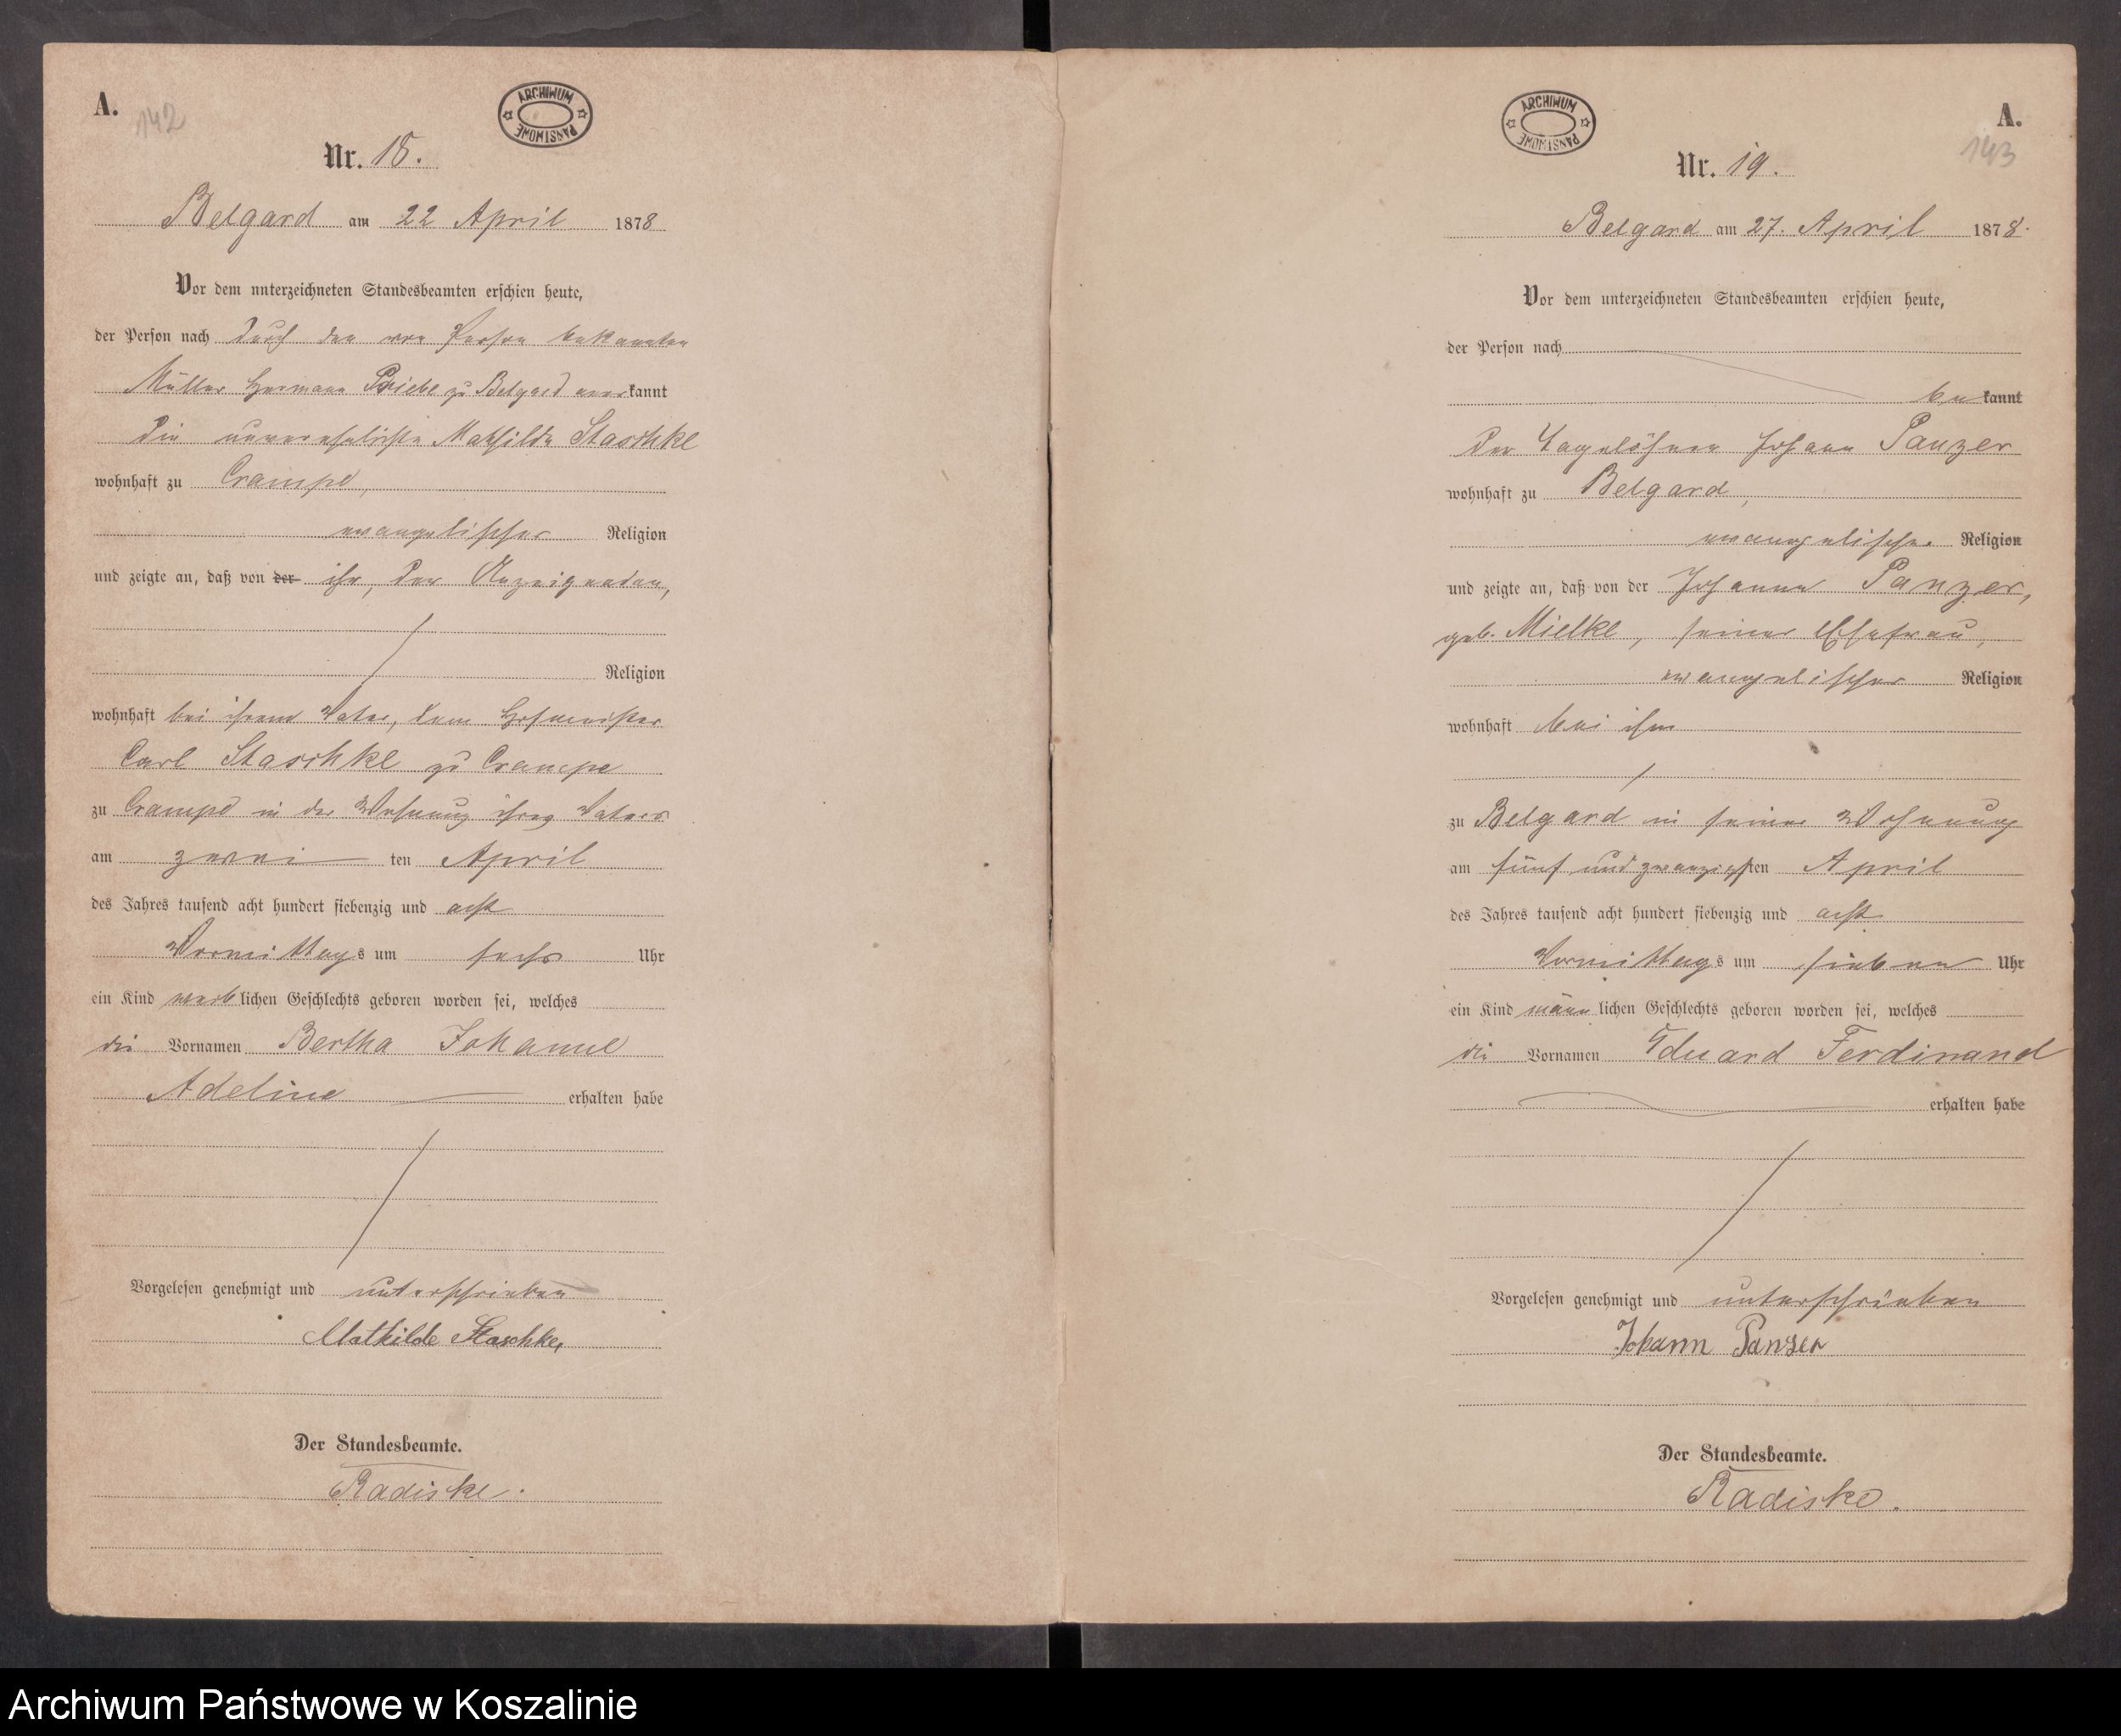 A.
142
ARCHIWUM PAŃSTWOWE
Nr. 18.
Belgard am 22 April 1878
Vor dem unterzeichneten Standesbeamten erschien heute,
der Person nach durch den von Person bekannten
Müller Hermann Priebe zu Belgard anerkannt
die unverehelichte Mathilde Staschke
wohnhaft zu Crampe,
evangelischer Religion
und zeigte an, daß von der ihr, der Anzeigenden,
Religion
wohnhaft bei ihrem Vater, dem Hofmeister
Carl Staschke zu Crampe
zu Crampe in der Wohnung ihres Vaters
am zwei ten April
des Jahres tausend acht hundert siebenzig und acht
Vormittags um sechs Uhr
ein Kind weiblichen Geschlechts geboren worden sei, welches
die Vornamen Bertha Johanne
Adeline erhalten habe
Vorgelesen genehmigt und unterschrieben
Mathilde Staschke,
Der Standesbeamte.
Radiske.
A.
143
ARCHIWUM PAŃSTWOWE
Nr. 19.
Belgard am 27. April 1878.
Vor dem unterzeichneten Standesbeamten erschien heute,
der Person nach
bekannt
der Tagelöhner Johann Panzer
wohnhaft zu Belgard,
evangelischer Religion
und zeigte an, daß von der Johanne Panzer,
geb. Mielke, seiner Ehefrau,
evangelischer Religion
wohnhaft bei ihm
zu Belgard in seiner Wohnung
am fünf und zwanzigsten April
des Jahres tausend acht hundert siebenzig und acht
Vormittags um sieben Uhr
ein Kind männlichen Geschlechts geboren worden sei, welches
die Vornamen Eduard Ferdinand
erhalten habe
Vorgelesen genehmigt und unterschrieben
Johann Panzer
Der Standesbeamte.
Radiske.
Archiwum Państwowe w Koszalinie